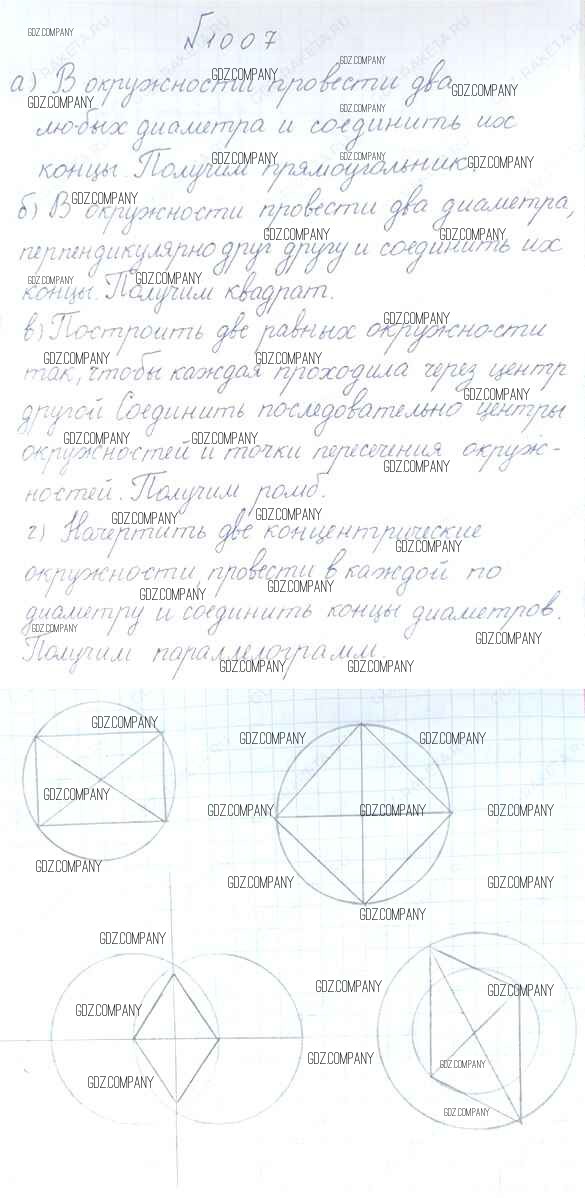 №1007
а) В окружности провести два
любых диаметра и соединить их
концы. Получим прямоугольник.
б) В окружности провести два диаметра,
перпендикулярно друг другу и соединить их
концы. Получим квадрат.
в) Построить две равных окружности
так, чтобы каждая проходила через центр
другой. Соединить последовательно центры
окружностей и точки пересечения окруж-
ностей. Получим ромб.
г) Начертить две концентрические
окружности, провести в каждой по
диаметру и соединить концы диаметров.
Получим параллелограмм.
GDZ.COMPANY